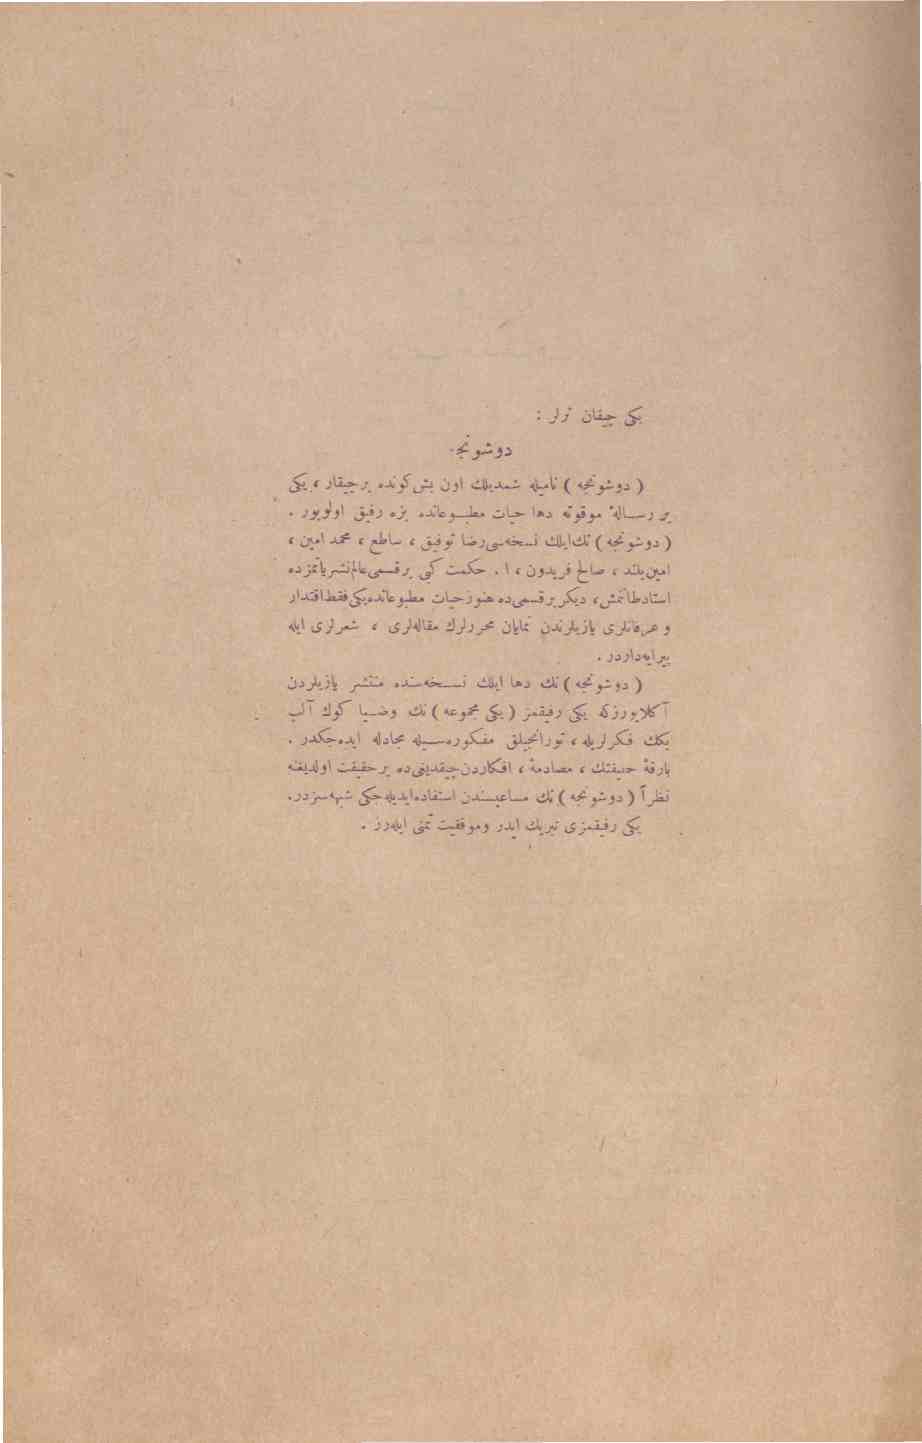 يكى چيقان ترلر :
دوشونجه
( دوشونجه ) ناميله شمديلك اون بش كونده بر چيقار ، يكى
بر رسالۀ موقوته دها حيات مطبوعاتده بزه رفيق اولويور .
( دوشونجه ) نك ايلك نسخه‌سى رضا توفيق ، ساطع ، محمد امين ،
امين بلند ، صالح فريدون ، ا . حكمت كبى بر قسمى عالم نشرياتمزده
استاد طانمش ، ديكر بر قسمى ده هنوز حيات مطبوعاتده يكى فقط اقتدار
و عرفانلرى يازيلرندن نمايان محررلرك مقاله‌لرى ، شعرلرى ايله
پيرايه‌داردر .
( دوشونجه ) نك دها ايلك نسخه‌سنده منتشر يازيلردن
آكلايورزكه يكى رفيقمز ( يكى مجموعه ) نك وضيا كوك آلب
بكك فكرلريله ، تورانجيلق مفكوره‌سيله مجادله ايده‌جكدر .
بارقۀ حقيقتك ، مصادمۀ افكاردن چيقديغى ده بر حقيقت اولديغنه
نظراً ( دوشونجه ) نك مساعيسندن استفاده ايديله‌جكى شبهه‌سزدر.
يكى رفيقمزى تبريك ايدر وموفقيت تمنى ايله‌رز .